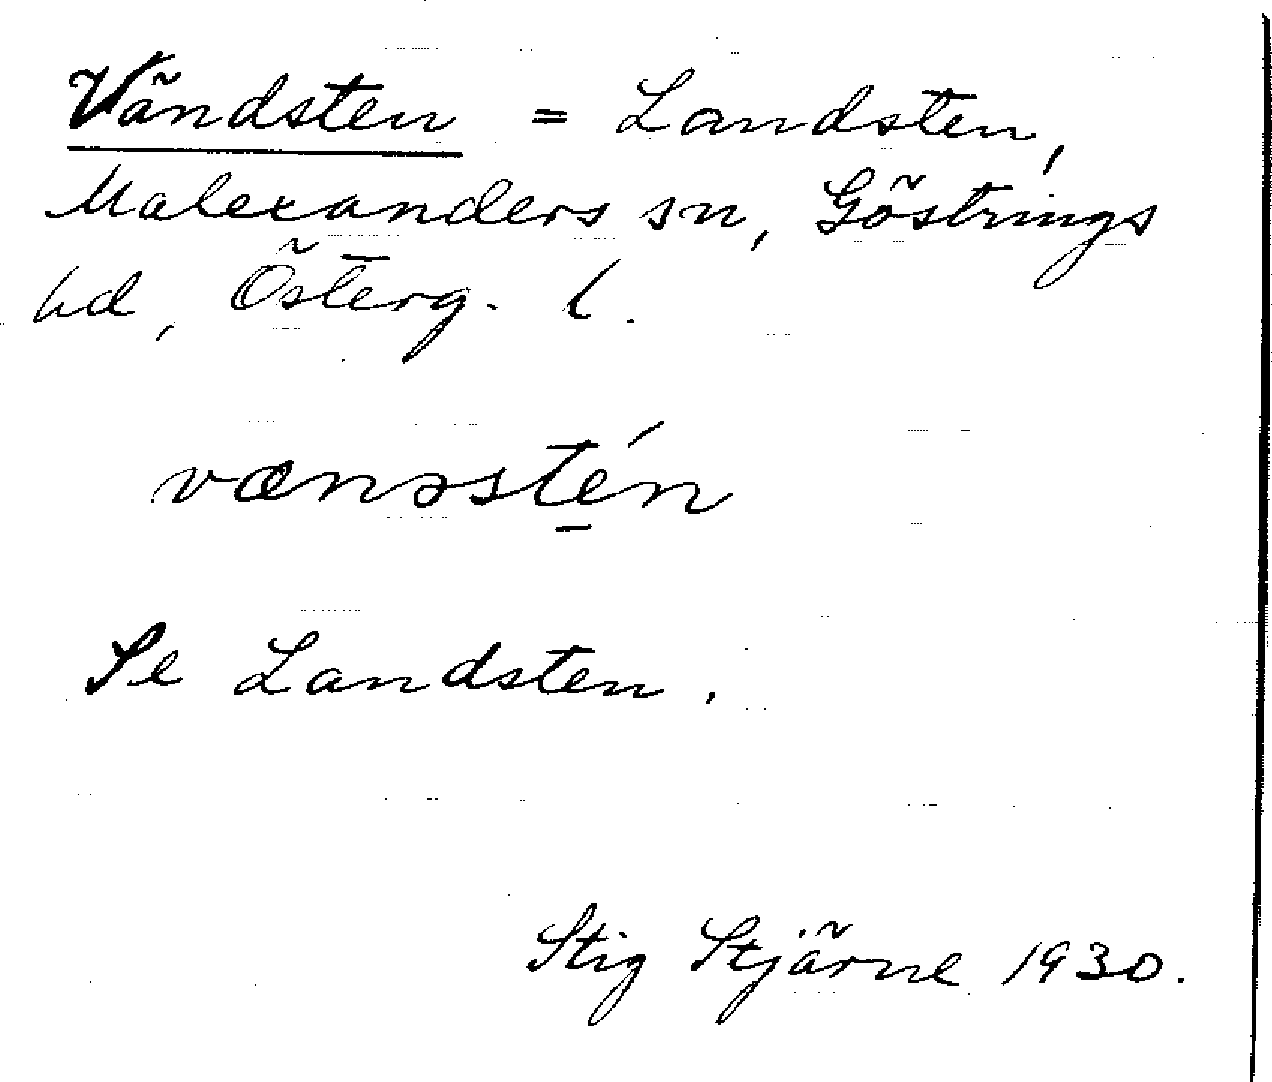 Vändsten = Landsten,
Malexanders sn, Göstrings
hd, Österg. l.
vænɔsté̱n
Se Landsten.
Stig Stjärne 1930.